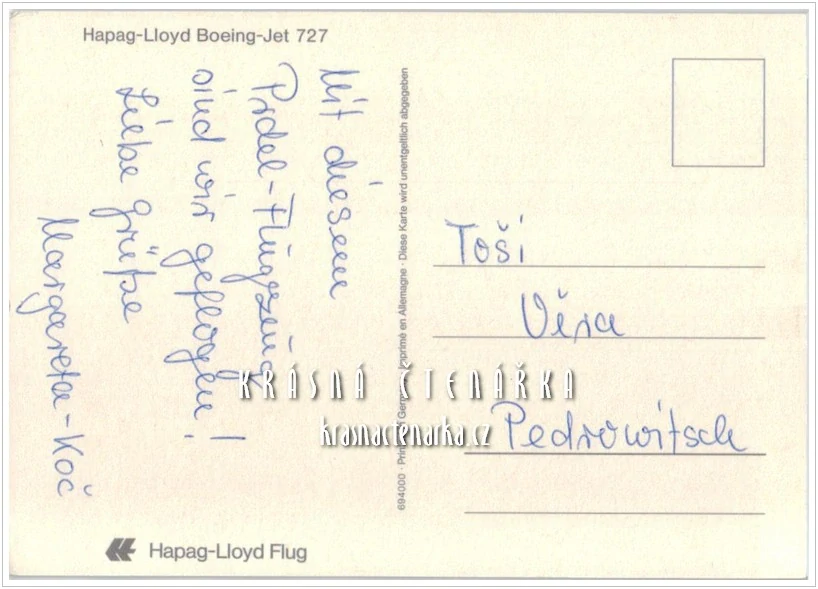 Hapag-Lloyd Boeing-Jet 727
Mit diesem
Pidel-Flugzeug
sind wir geflogen!
Liebe Grüße
Margareta-Koč
694000 · Printed in Germany · Imprimé en Allemagne · Diese Karte wird unentgeltlich abgegeben
Toši
Věra
Pedrowitsch
KRÁSNÁ ČTENÁŘKA
krasnactenarka.cz
Hapag-Lloyd Flug